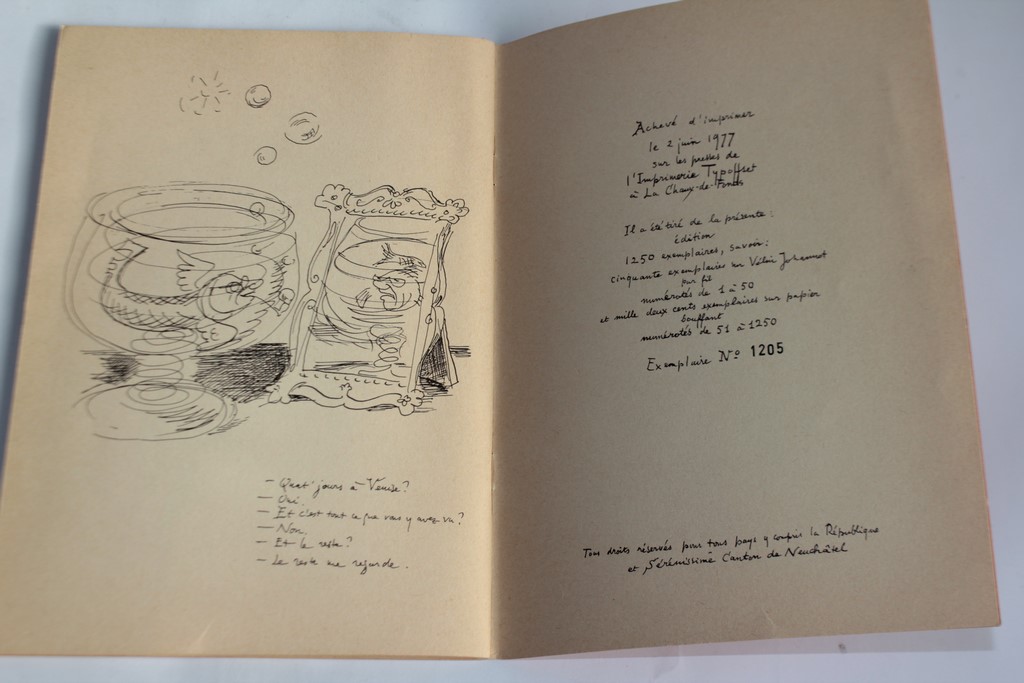 — Quat' jours à Venise ?
— Oui.
— Et c'est tout ce que vous y avez vu ?
— Non.
— Et le reste ?
— Le reste me regarde.
Achevé d'imprimer
le 2 juin 1977
sur les presses de
l'Imprimerie Typoffset
à La Chaux-de-Fonds
Il a été tiré de la présente :
édition
1250 exemplaires, savoir :
cinquante exemplaires sur Vélin Johannot
pur fil
numérotés de 1 à 50
et mille deux cents exemplaires sur papier
bouffant
numérotés de 51 à 1250
Exemplaire No 1205
Tous droits réservés pour tous pays y compris la République
et Sérénissime Canton de Neuchâtel